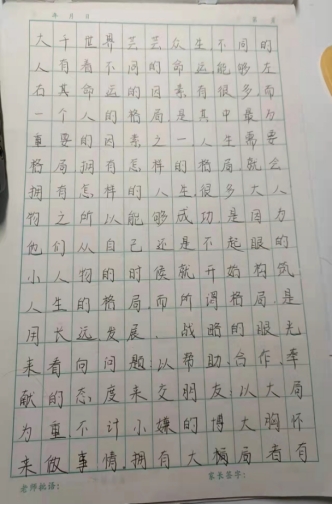 年 月 日
大千世界芸芸众生不同的
人有着不同的命运能够左
右其命运的因素有很多而
一个人的格局是其中最为
重要的因素之一.人生需要
格局拥有怎样的格局.就会
拥有怎样的人生很多大人
物之所以能够成功是因为
他们从自己还是不起眼的
小人物的时候就开始构筑
人生的格局.而所谓格局.是
用长远发展.战略的眼光
来看向问题:以帮助.合作.奉
献的态度来交朋友:以大局
为重不计小嫌的博大胸怀
来做事情.拥有大格局者有
老师批语: 家长签字: